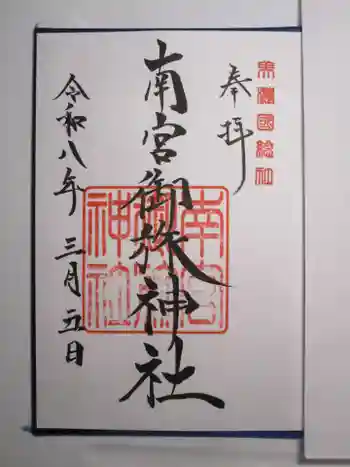 美濃國総社
奉拝
南宮御旅神社
南宮御旅神社
令和八年 三月五日